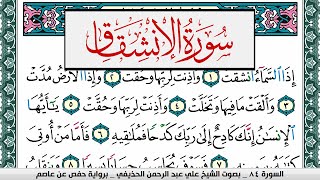 سورة الإنشقاق
إِذَا السَّمَاءُ انشَقَّتْ ١ وَأَذِنَتْ لِرَبِّهَا وَحُقَّتْ ٢ وَإِذَا الْأَرْضُ مُدَّتْ
٣ وَأَلْقَتْ مَا فِيهَا وَتَخَلَّتْ ٤ وَأَذِنَتْ لِرَبِّهَا وَحُقَّتْ ٥ يَا أَيُّهَا
الْإِنسَانُ إِنَّكَ كَادِحٌ إِلَىٰ رَبِّكَ كَدْحًا فَمُلَاقِيهِ ٦ فَأَمَّا مَنْ أُوتِيَ
السورة ٨٤ - بصوت الشيخ علي عبد الرحمن الحذيفي - برواية حفص عن عاصم